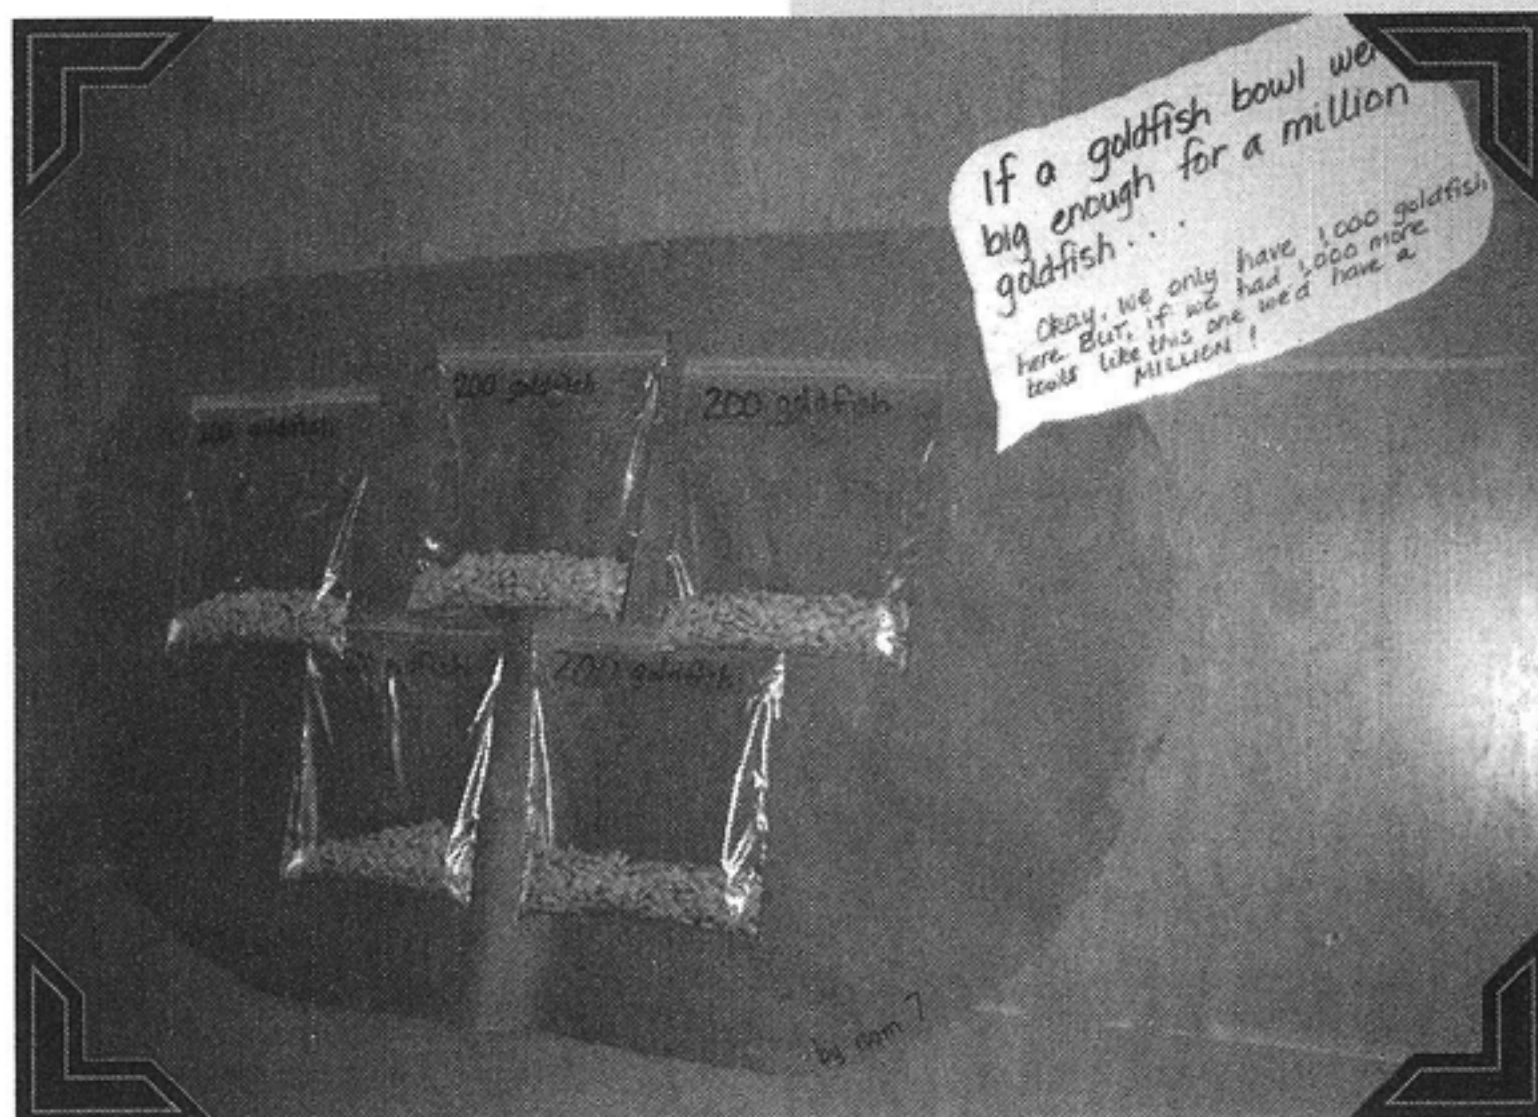 If a goldfish bowl
big enough for a million
goldfish . . .
Okay, we only have 1,000 goldfish
here. BUT, if we had 1,000 more
bowls like this one we'd have a
MILLION !
200 goldfish
200 goldfish
goldfish
200 goldfish
by room 7